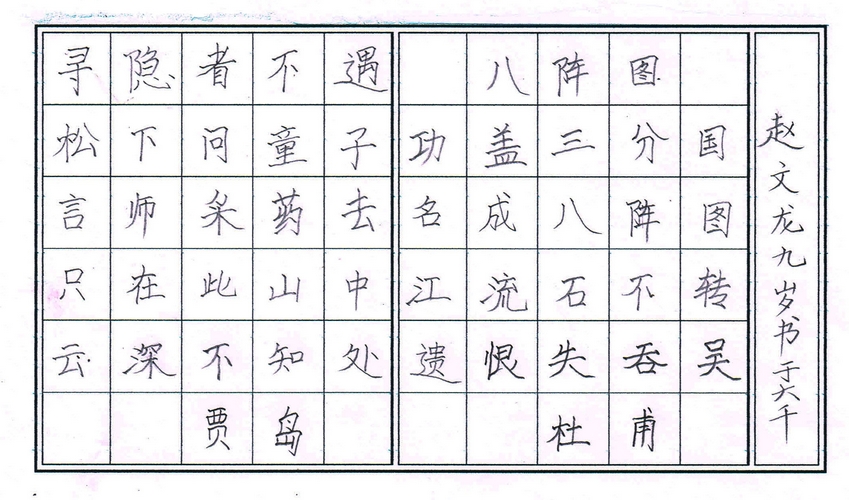 寻隐者不遇
松下问童子
言师采药去
只在此山中
云深不知处
贾岛
八阵图
功盖三分国
名成八阵图
江流石不转
遗恨失吞吴
杜甫
赵文龙九岁书于大千